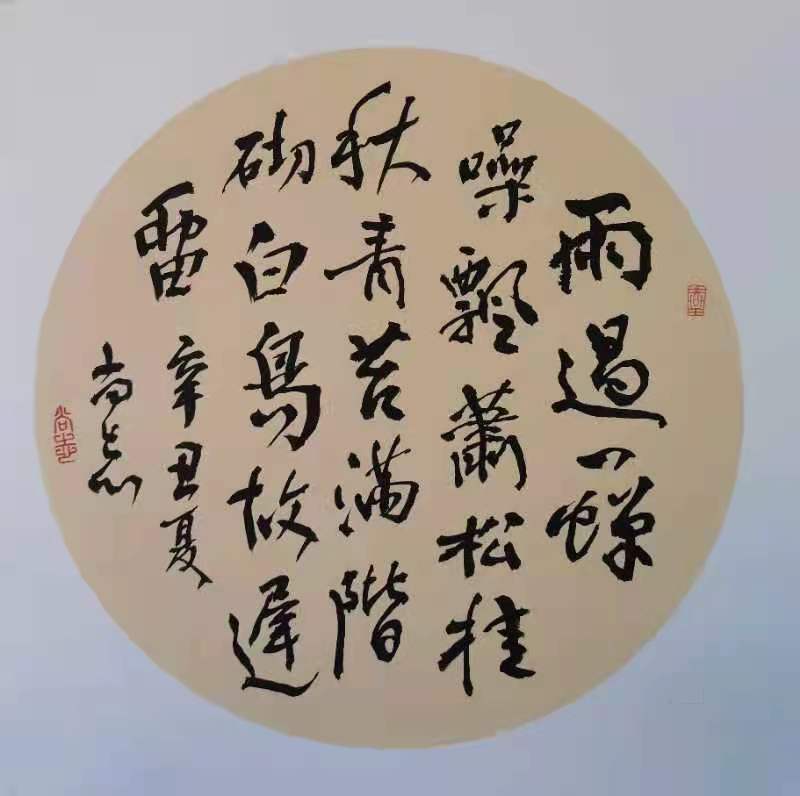 雨過一蟬
噪飄蕭松桂
秋青苔满階
砌白鳥故遲
留辛丑夏
尚志